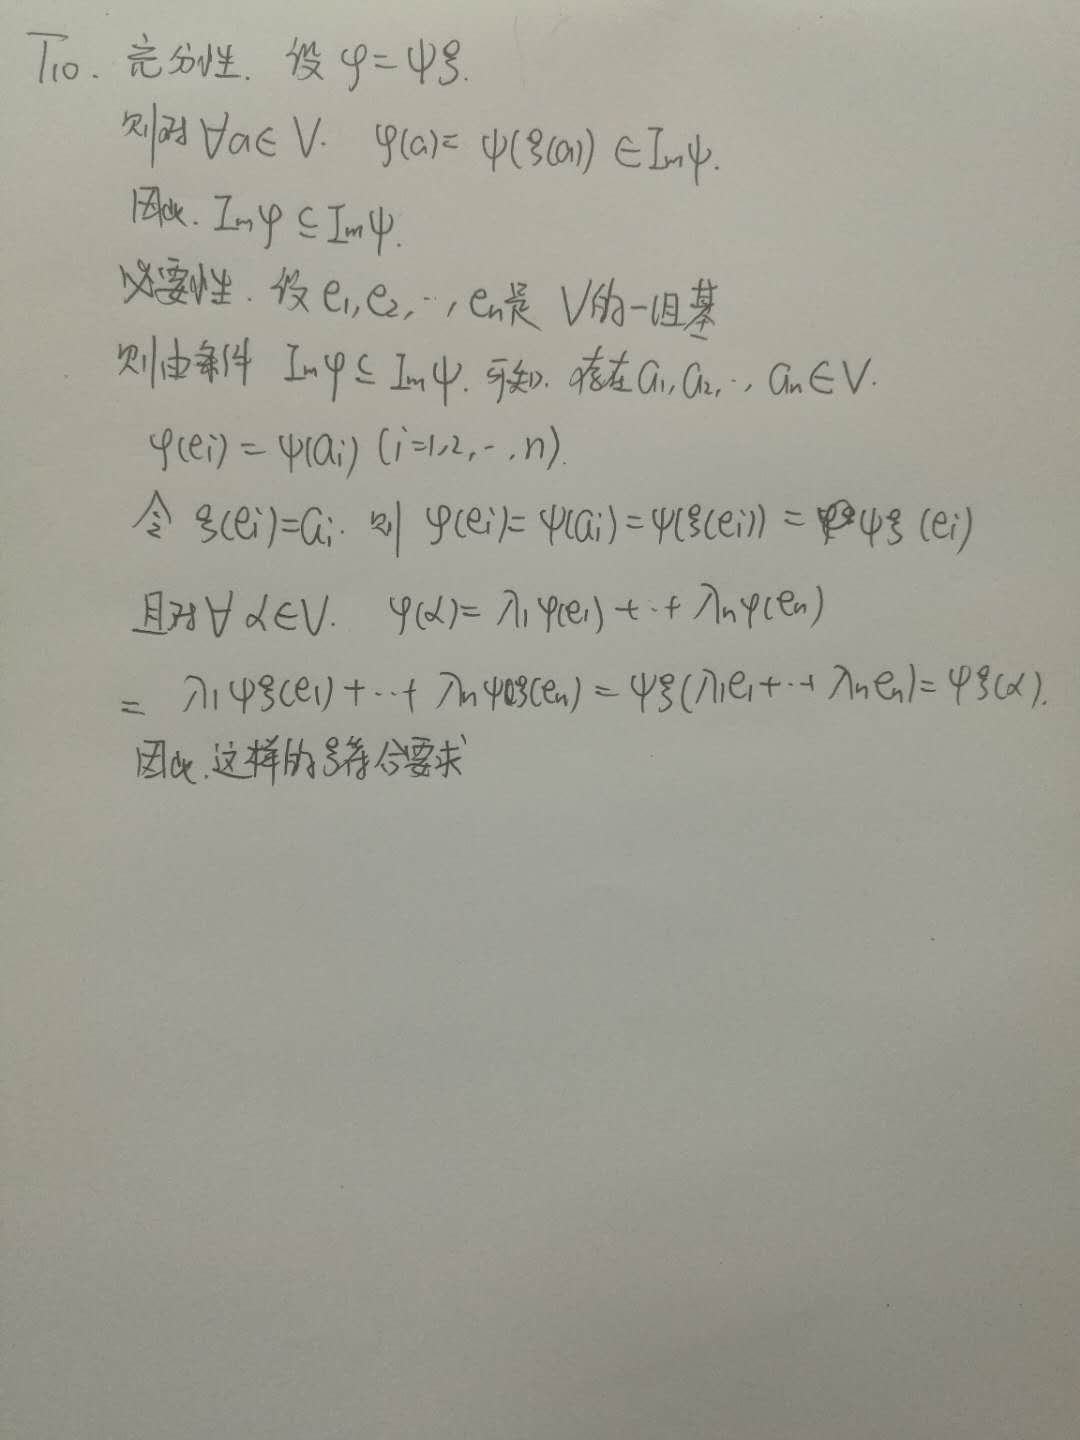 T10. 充分性. 设 φ=ψξ.
则对∀a∈V. φ(a)= ψ(ξ(a)) ∈Imψ.
因此. Imφ⊆Imψ.
必要性. 设 e₁,e₂,…,eₙ是 V的一组基
则由条件 Imφ⊆Imψ. 可知. 存在a₁,a₂,…, aₙ∈V.
φ(eᵢ) = ψ(aᵢ) (i=1,2,…,n).
令 ξ(eᵢ)=aᵢ. 则 φ(eᵢ)= ψ(aᵢ)=ψ(ξ(eᵢ)) = ψξ(eᵢ)
且对∀α∈V. φ(α)= λ₁φ(e₁) +…+ λₙφ(eₙ)
= λ₁ψξ(e₁)+…+ λₙψξ(eₙ) = ψξ(λ₁e₁+…+ λₙeₙ)= ψξ(α).
因此.这样的ξ符合要求